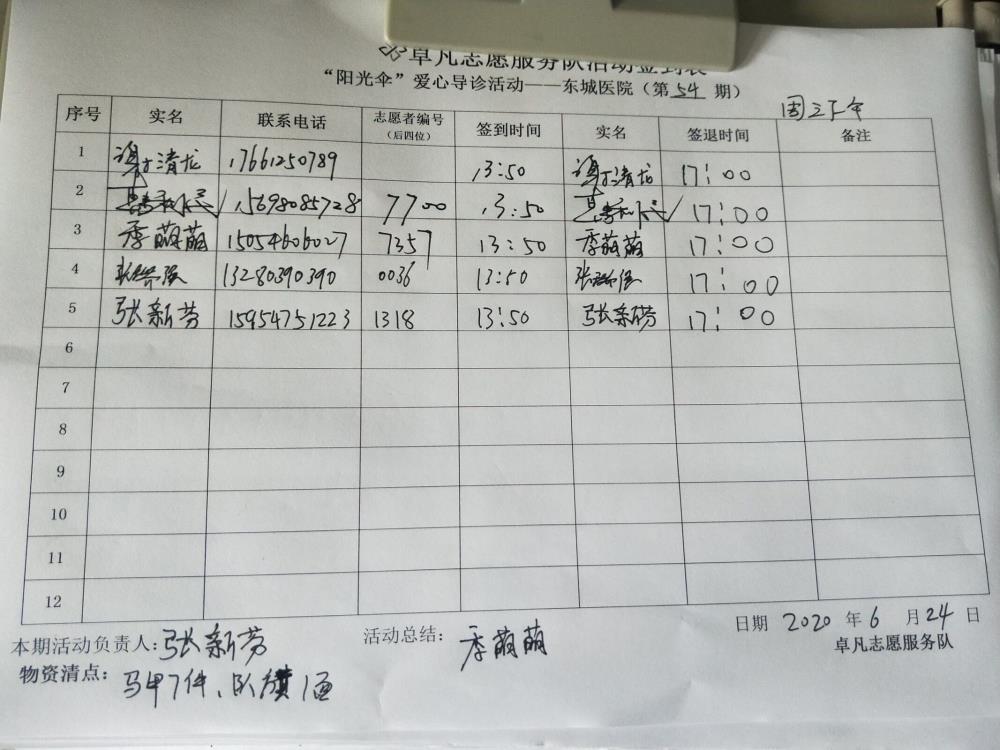 卓凡志愿服务队活动签到表
“阳光伞”爱心导诊活动——东城医院(第54期)
周三下午
序号 实名 联系电话 志愿者编号(后四位) 签到时间 实名 签退时间 备注
1 清龙 17661250789 13:50 清龙 17:00
2 15698085728 7700 13:50 17:00
3 季萌萌 15054606027 7357 13:50 季萌萌 17:00
4 张 13280390390 0036 13:50 张 17:00
5 张新芳 15954751223 1318 13:50 张新芳 17:00
6
7
8
9
10
11
12
日期 2020 年 6 月 24 日
本期活动负责人:张新芳 活动总结: 季萌萌 卓凡志愿服务队
物资清点: 马甲7件、队旗1面